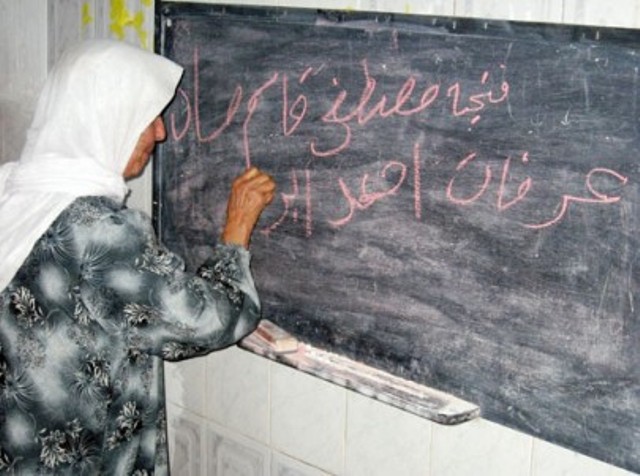 فتحية مصطفى قاسم صا
عرفات احمد ابر